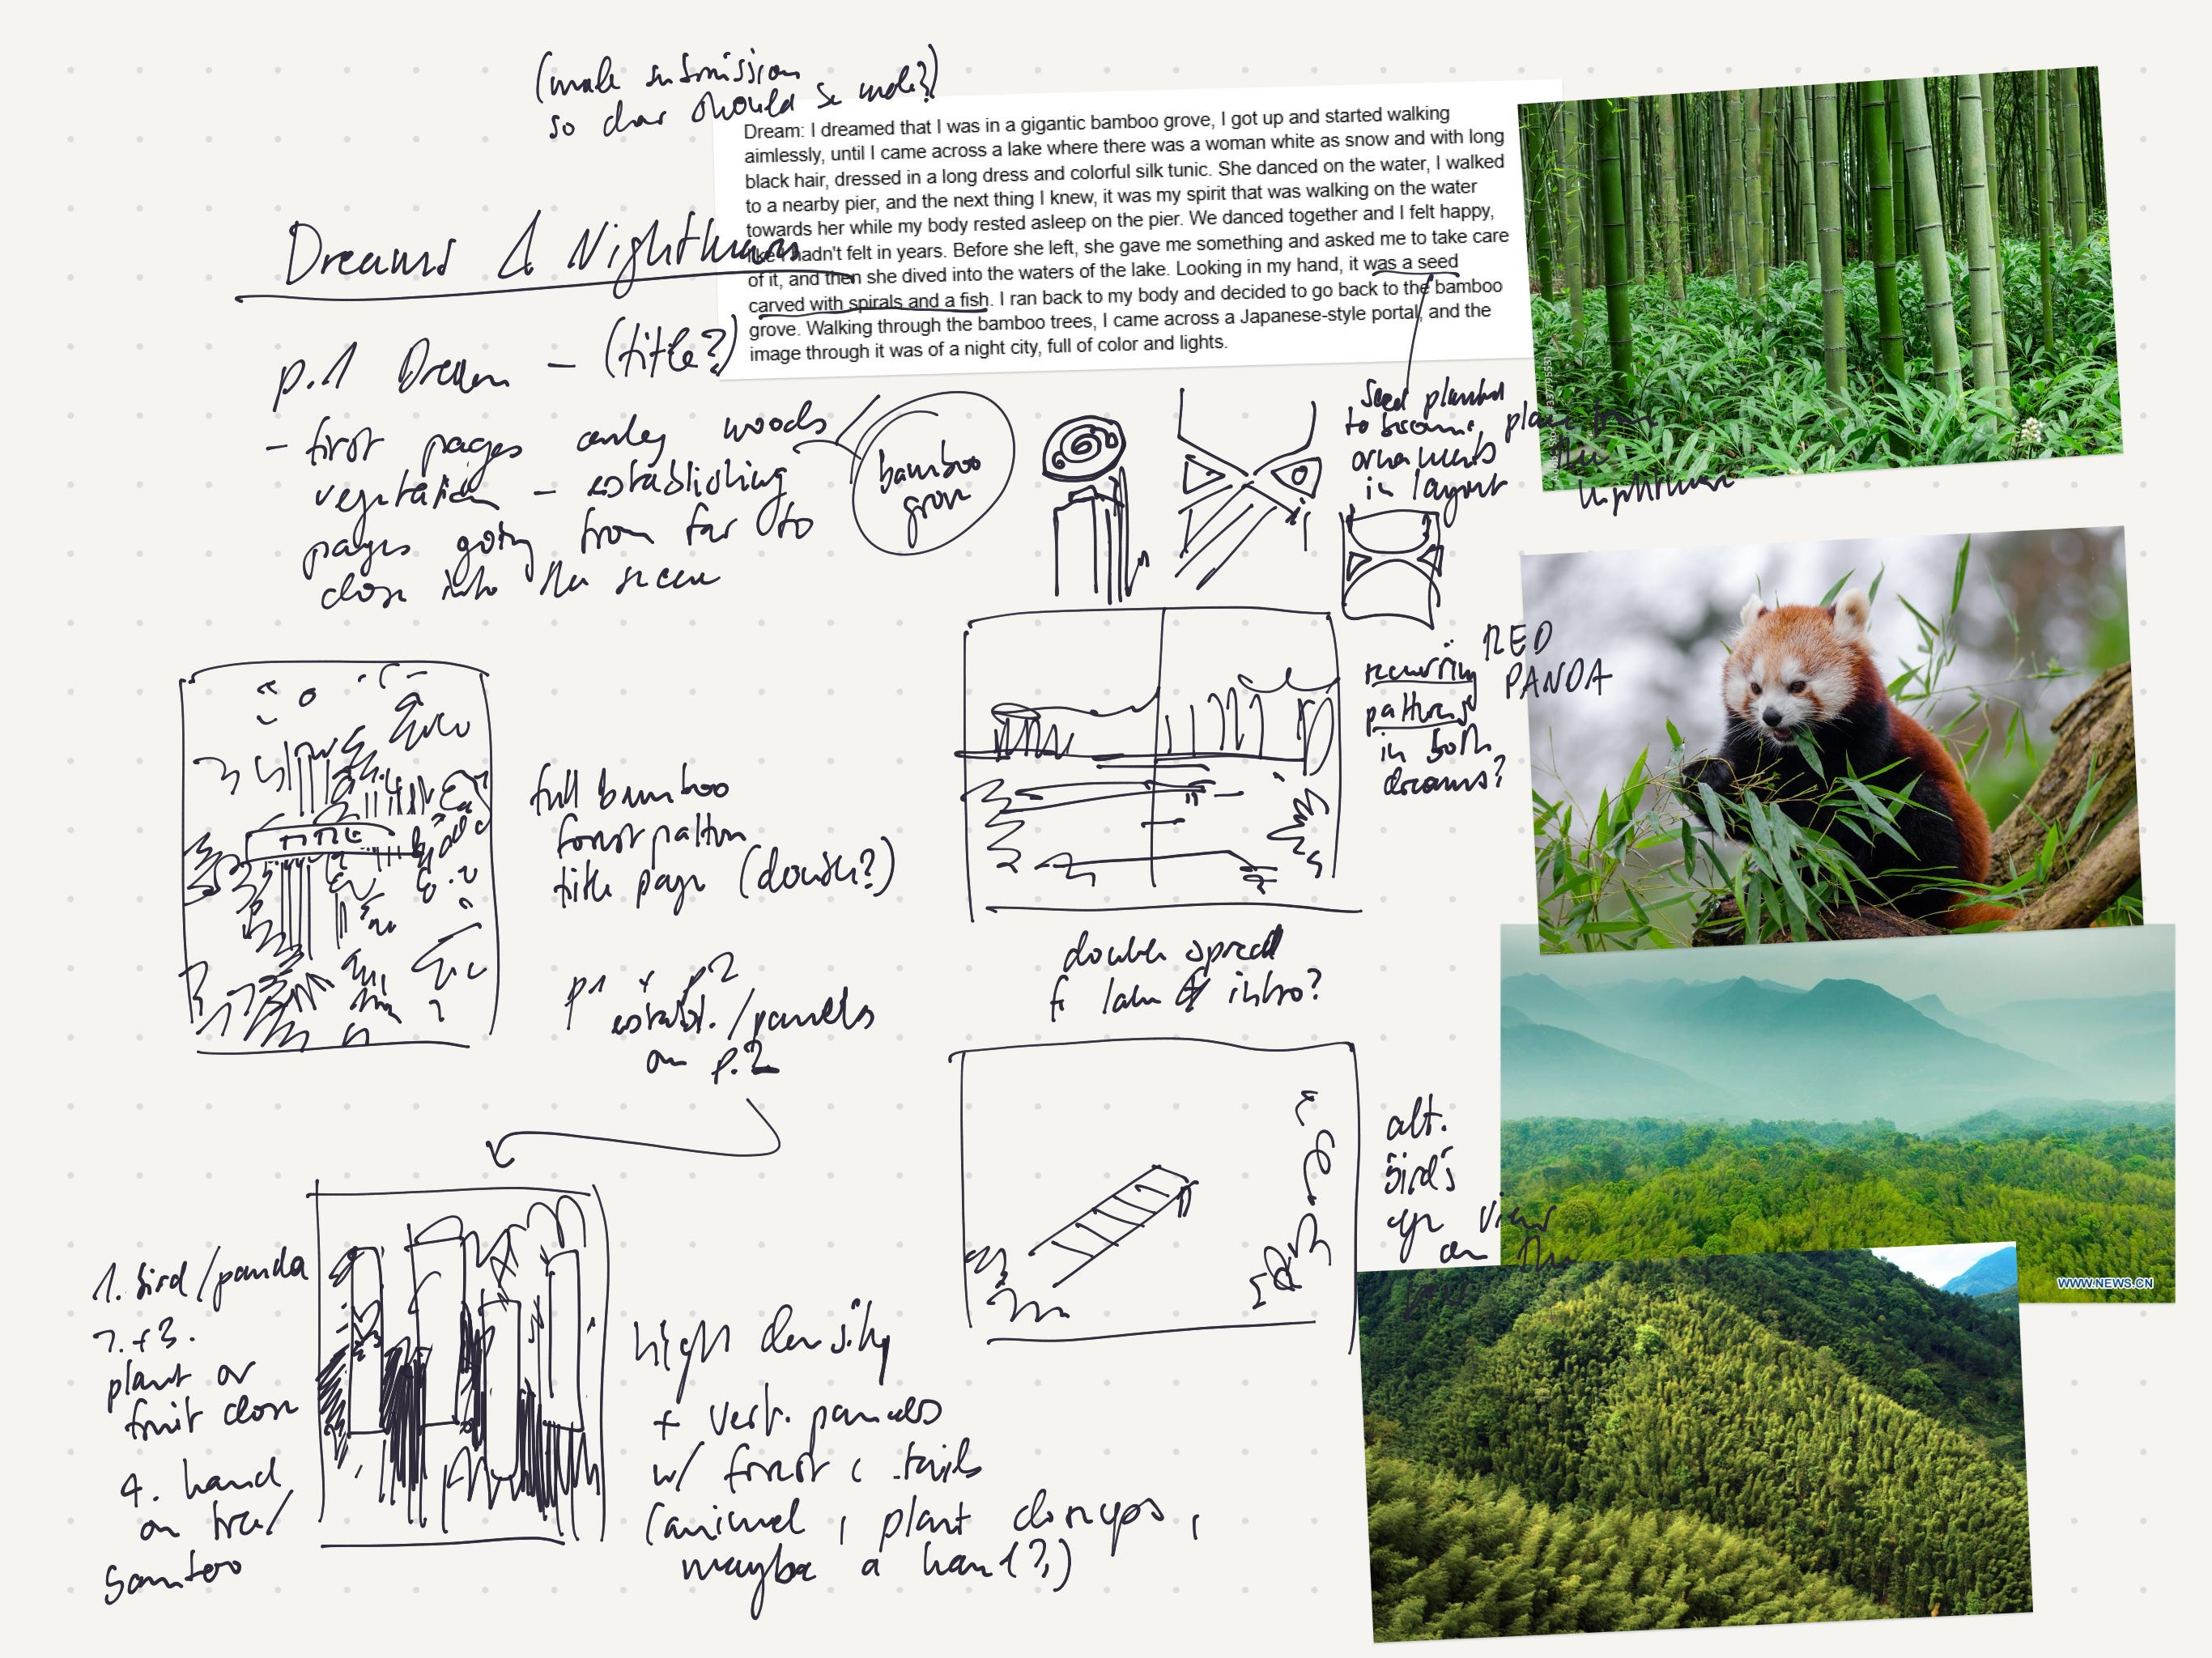 (male submission
so char should be male?)
Dream: I dreamed that I was in a gigantic bamboo grove, I got up and started walking
aimlessly, until I came across a lake where there was a woman white as snow and with long
black hair, dressed in a long dress and colorful silk tunic. She danced on the water, I walked
to a nearby pier, and the next thing I knew, it was my spirit that was walking on the water
towards her while my body rested asleep on the pier. We danced together and I felt happy,
like I hadn't felt in years. Before she left, she gave me something and asked me to take care
of it, and then she dived into the waters of the lake. Looking in my hand, it was a seed
carved with spirals and a fish. I ran back to my body and decided to go back to the bamboo
grove. Walking through the bamboo trees, I came across a Japanese-style portal, and the
image through it was of a night city, full of color and lights.
Dreams &
p.1 Dream – (title?)
- first pages only woods
vegetation – establishing
pages going from far to
close into the scene
bamboo
grove
Seed planted
to become
ornaments
in layout
recurring
patterns
in both
dreams?
RED
PANDA
TITLE
full bamboo
forest pattern
title page (double?)
p1 + p2
establ. / panels
on p.2
double spread
f lake intro?
alt.
bird's
eye view
on the
1. bird / panda
2. + 3.
plant or
fruit close
4. hand
on tree /
bamboo
high density
+ vert. panels
w/ forest
(animal, plant closeups,
maybe a hand?)
WWW.NEWS.CN